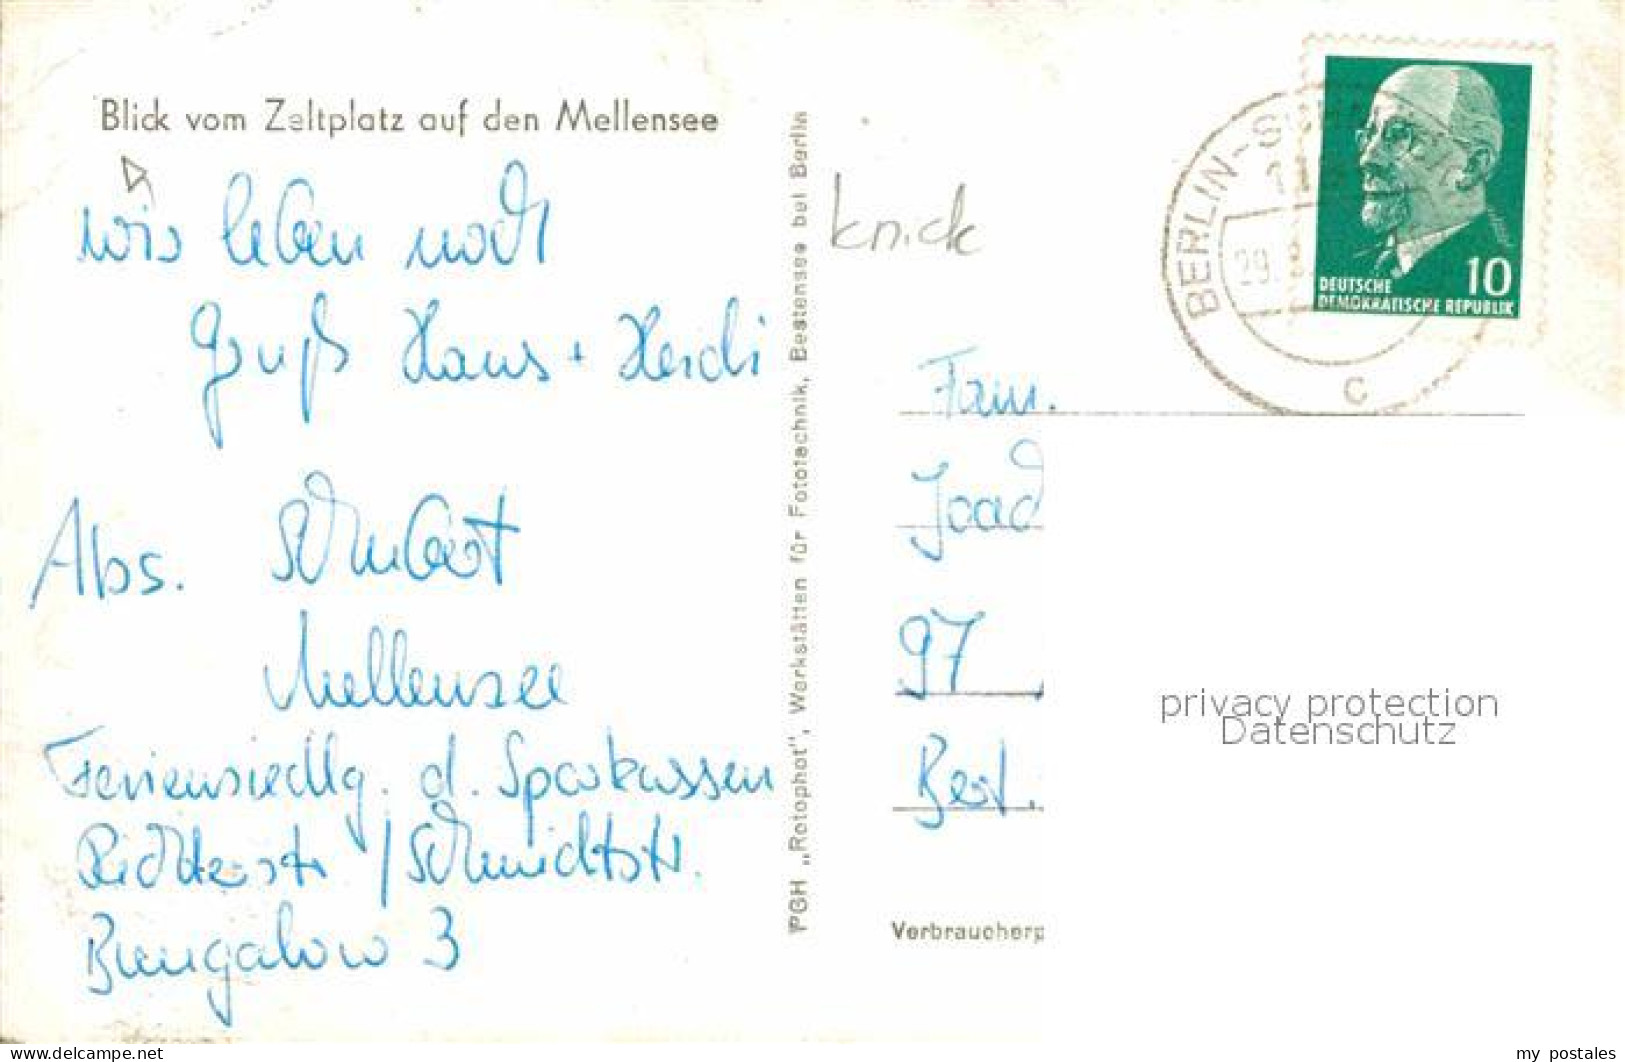 Blick vom Zeltplatz auf den Mellensee
wir leben noch
Gruß Hans + Heidi
Abs. Schubert
Mellensee
Feriensiedlg. d. Sparkassen
Richterstr / Schmidtstr.
Bungalow 3
PGH „Rotophot", Werkstätten für Fototechnik, Bestensee bei Berlin
knick
BERLIN-
29.
C
10
DEUTSCHE
DEMOKRATISCHE REPUBLIK
Fam.
Joac
97
Berl.
Verbraucherp
privacy protection
Datenschutz
www.delcampe.net
my_postales